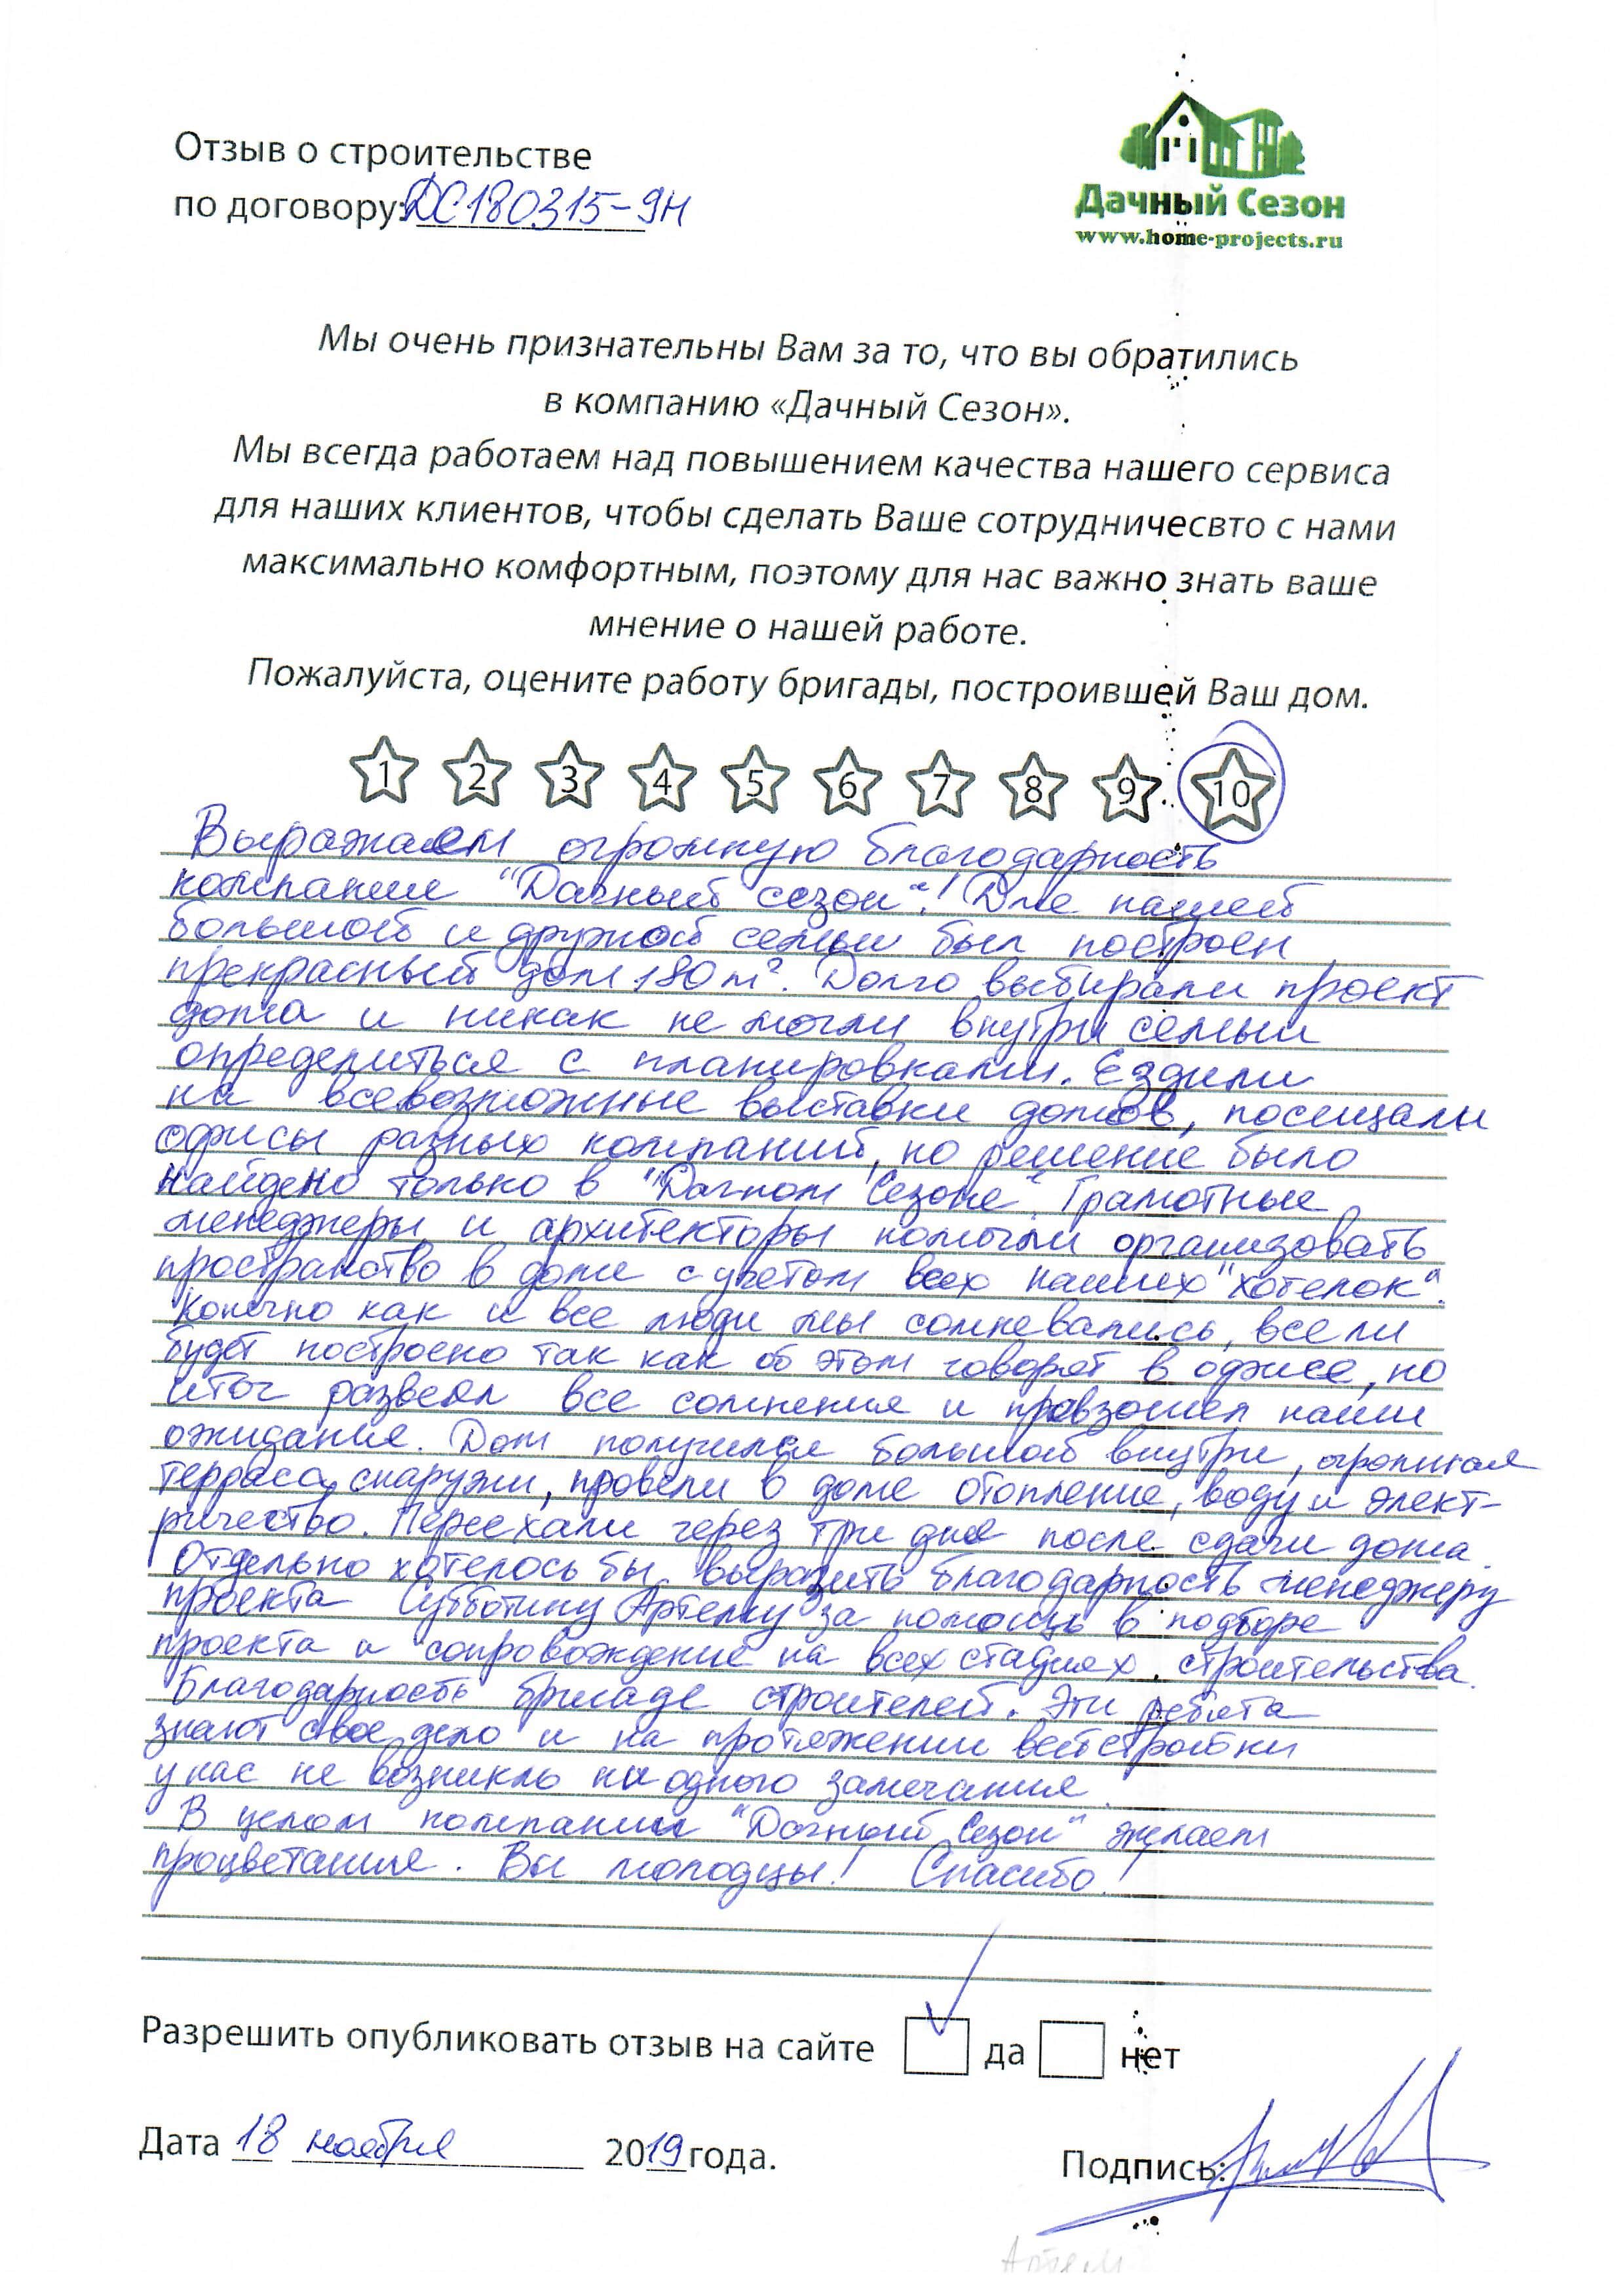 Отзыв о строительстве
по договору: ДС180315-9Н
Дачный Сезон
www.home-projects.ru
Мы очень признательны Вам за то, что вы обратились
в компанию «Дачный Сезон».
Мы всегда работаем над повышением качества нашего сервиса
для наших клиентов, чтобы сделать Ваше сотрудничесвто с нами
максимально комфортным, поэтому для нас важно знать ваше
мнение о нашей работе.
Пожалуйста, оцените работу бригады, построившей Ваш дом.
1 2 3 4 5 6 7 8 9 10
Выражаем огромную благодарность
компании "Дачный сезон"! Для нашей
большой и дружной семьи был построен
прекрасный дом 180 м². Долго выбирали проект
дома и никак не могли внутри семьи
определиться с планировками. Ездили
на всевозможные выставки домов, посещали
офисы разных компаний, но решение было
найдено только в "Дачном Сезоне". Грамотные
менеджеры и архитекторы помогли организовать
пространство в доме с учетом всех наших "хотелок".
Конечно как и все люди мы сомневались, все ли
будет построено так как об этом говорят в офисе, но
итог развеял все сомнения и превзошел наши
ожидания. Дом получился большой внутри, огромная
терраса снаружи, провели в доме отопление, воду и элект-
ричество. Переехали через три дня после сдачи дома.
Отдельно хотелось бы выразить благодарность менеджеру
проекта Субботину Артему за помощь в подборе
проекта и сопровождение на всех стадиях строительства.
Благодарность бригаде строителей. Эти ребята
знают свое дело и на протяжении всей стройки
у нас не возникло ни одного замечания.
В целом компании "Дачный Сезон" желаем
процветания. Вы молодцы! Спасибо!
Разрешить опубликовать отзыв на сайте да нет
Дата 18 ноября 2019 года.
Подпись:
Артем